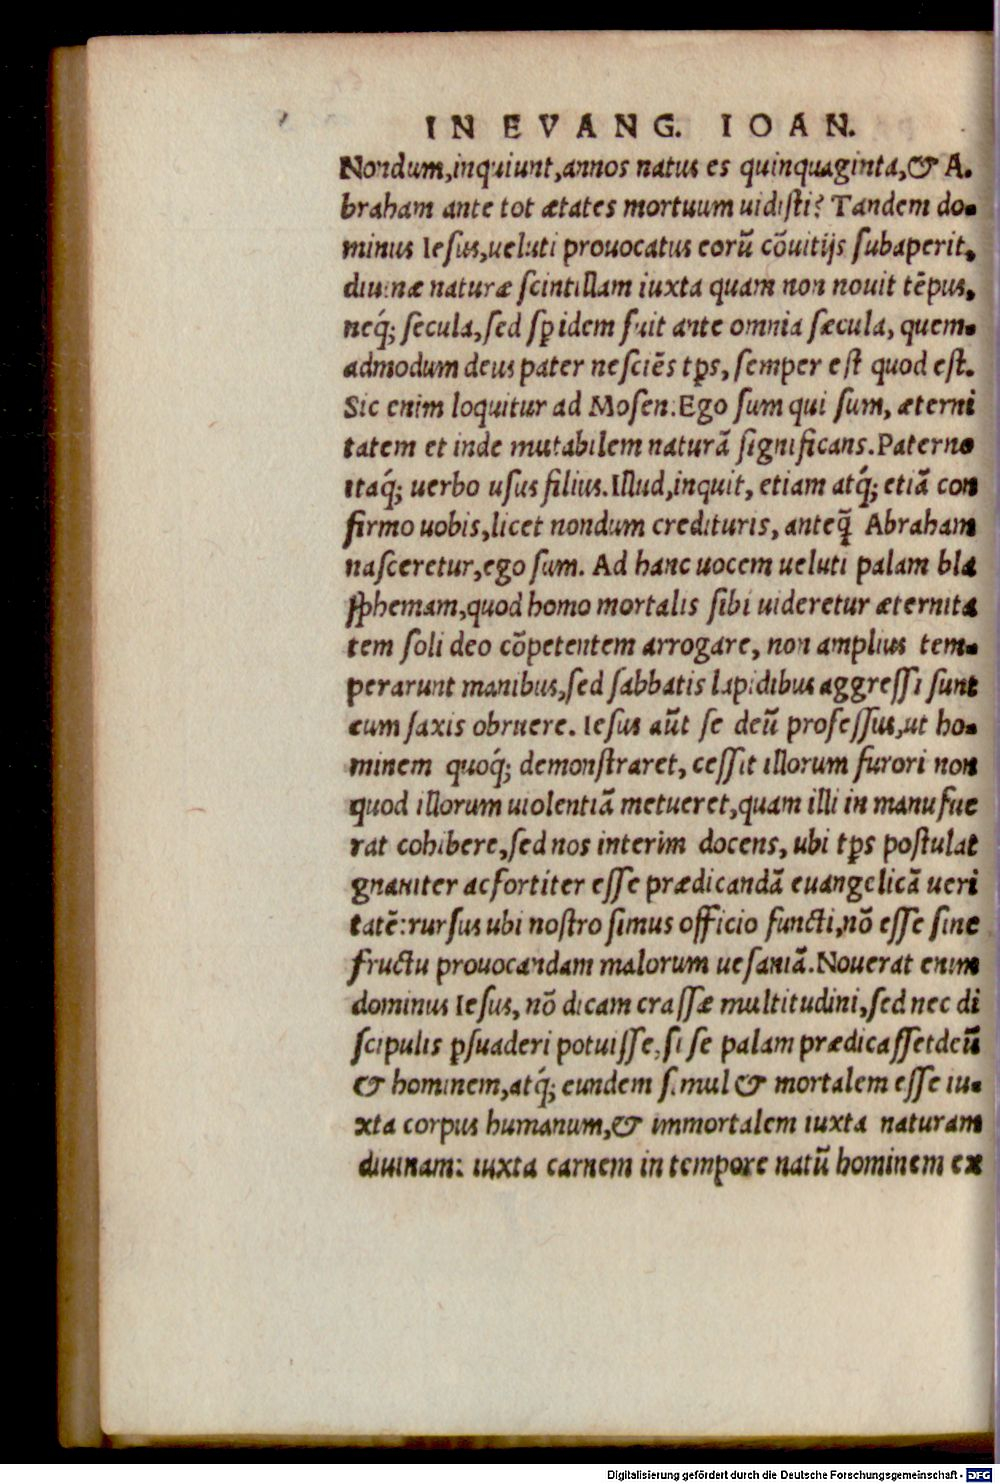 IN EVANG. IOAN.
Nondum,inquiunt,annos natus es quinquaginta,& A.
braham ante tot ætates mortuum uidisti? Tandem do-
minus Iesus,ueluti prouocatus eorū cōuitijs subaperit,
diuinæ naturæ scintillam iuxta quam non nouit tēpus,
neq́; secula,sed sꝑ idem fuit ante omnia sæcula, quem-
admodum deus pater nesciēs tꝑs, semper est quod est.
Sic enim loquitur ad Mosen:Ego sum qui sum, æterni
tatem et inde mutabilem naturā significans.Paterno
itaq́; uerbo usus filius.Illud,inquit, etiam atq́; etiā con
firmo uobis,licet nondum credituris, anteq̄ Abraham
nasceretur,ego sum. Ad hanc uocem ueluti palam bla
sphemam,quod homo mortalis sibi uideretur æternita
tem soli deo cōpetentem arrogare, non amplius tem-
perarunt manibus,sed sabbatis lapidibus aggressi sunt
eum saxis obruere. Iesus aūt se deū professus,ut ho-
minem quoq́; demonstraret, cessit illorum furori non
quod illorum uiolentiā metueret,quam illi in manu fue
rat cohibere,sed nos interim docens, ubi tꝑs postulat
gnauiter ac fortiter esse prædicandā euangelicā ueri
tatē:rursus ubi nostro simus officio functi,nō esse sine
fructu prouocandam malorum uesaniā.Nouerat enim
dominus Iesus, nō dicam crassæ multitudini,sed nec di
scipulis ꝑsuaderi potuisse,si se palam prædicasset deū
& hominem,atq́; eundem simul & mortalem esse iu-
xta corpus humanum,& immortalem iuxta naturam
diuinam: iuxta carnem in tempore natū hominem ex
Digitalisierung gefördert durch die Deutsche Forschungsgemeinschaft - DFG